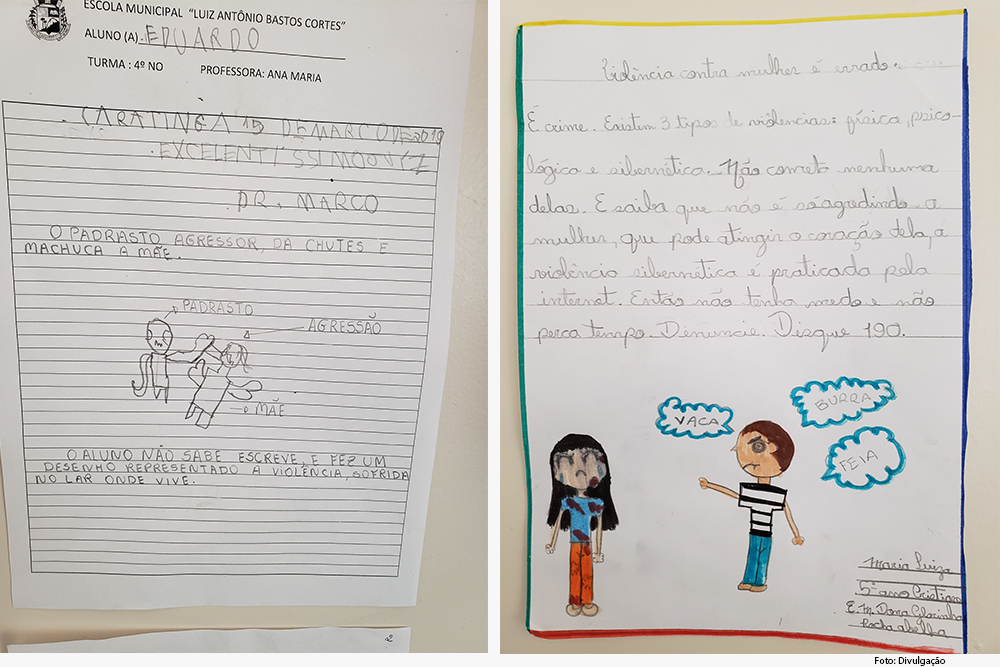 ESCOLA MUNICIPAL "LUIZ ANTÔNIO BASTOS CORTES"
ALUNO (A). EDUARDO
TURMA : 4º NO PROFESSORA: ANA MARIA
CARATINGA 15 DE MARÇO DE 2019
EXCELENTISSIMO
DR. MARCO
O PADRASTO AGRESSOR, DA CHUTES E
MACHUCA A MÃE.
PADRASTO
AGRESSÃO
MÃE
O ALUNO NÃO SABE ESCREVE, E FEZ UM
DESENHO REPRESENTADO A VIOLÊNCIA, SOFRIDA
NO LAR ONDE VIVE.
2
Violência contra mulher é errado.
É crime. Existem 3 tipos de violencias: física, psico-
lógica e sibernética. Não cometa nenhuma
delas. E saiba que não é só agredindo a
mulher, que pode atingir o coração dela, a
violência sibernética é praticada pela
internet. Então não tenha medo e não
perca tempo. Denuncie. Disque 190.
VACA
BURRA
FEIA
Maria Luiza
5º ano Cristiane
E. M. Dona
Rocha
Foto: Divulgação